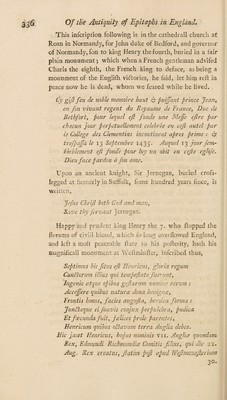 336 Of the Antiquity of Epitaphs in England.
This inscription following is in the cathedrall church at
Roan in Normandy, for John duke of Bedford, and governor
of Normandy, son to king Henry the fourth, buried in a fair
plain monument; which when a French gentleman advised
Charls the eighth, the French king to deface, as being a
monument of the English victories, he said, let him rest in
peace now he is dead, whom we feared while he lived.
Cy gist feu de noble memoire haut & puissant prince Jean,
en son vivant regent du Royaume de France, Duc de
Bethfort, pour lequel est fonde une Messe estre par
chacun jour perpetuellement celebrée en cest autel par
le College des Clementins incontinent apres prime: &
trespassa le 13 Septembre 1435. Auquel 13 jour sem-
blablement est fondé pour luy un obit en ceste eglise.
Dieu face pardon à son ame.
Upon an ancient knight, Sir Jernegan, buried cross-
legged at Somerly in Suffolk, some hundred years since, is
written,
Jesus Christ both God and man,
Save thy servant Jernegan.
Happy and prudent king Henry the 7. who stopped the
streams of civill bloud, which so long overflowed England,
and left a most peaceable state to his posterity, hath his
magnificall monument at Westminster, inscribed thus,
Septimus hic situs est Henricus, gloria regum
Cunctorum illius qui tempestate fuerunt,
Ingenio atque opibus gestarum nomine rerum:
Accessere quibus natura dona benigna,
Frontis honos, facies augusta, heroica forma:
Junctaque ei suavis conjux perpulchra, pudica
Et fecunda fuit, fœlices prole parentes,
Henricum quibus octavum terra Anglia debes.
Hic jacet Henricus, hujus nominis VII. Angliæ quondam
Rex, Edmundi Richmondiæ Comitis filius, qui die 22.
Aug. Rex creatus, statim post apud Westmonasterium
30.